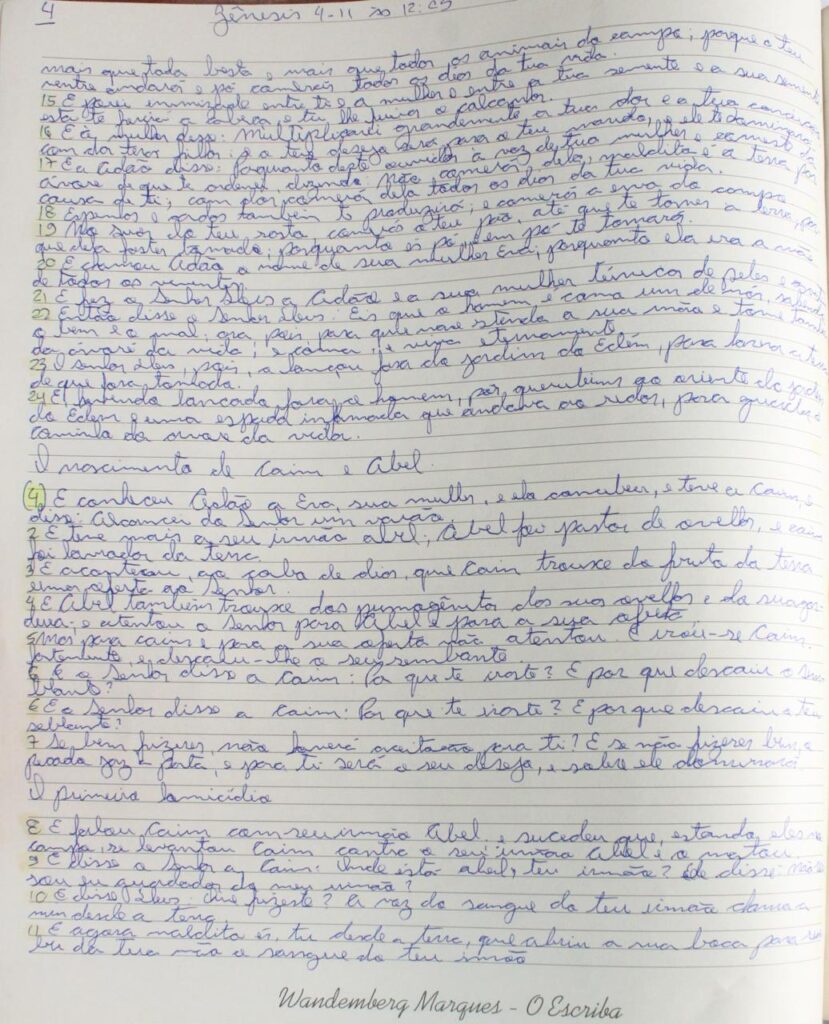 4 Gênesis 4-11 às 12:05
mais que toda besta e mais que todos os animais do campo; porque o teu
ventre andará e pó comerás todos os dias da tua vida.
15 E porei inimizade entre ti e a mulher e entre a tua semente e a sua semente
esta te ferirá a cabeça, e tu lhe o calcanhar.
16 E à mulher disse: Multiplicarei grandemente a tua dor e a tua conceição
com dor teras filhos; e o teu desejo será para o teu marido, e ele te dominará.
17 E a Adão disse: porquanto deste ouvidos à voz de tua mulher e comeste da
árvore de que te ordenei, dizendo: Não comerás dela, maldita é a terra por
causa de ti; com dor comerás dela todos os dias da tua vida.
18 Espinhos e cardos também te produzirá; e comerás a erva do campo
19 No suor do teu rosto comerás o teu pão, até que te tornes a terra, por
que dela foste tomado, porquanto és pó, e em pó te tornarás.
20 E chamou Adão o nome de sua mulher Eva; porquanto ela era a mãe
de todos os viventes.
21 E fez o Senhor Deus a Adão e a sua mulher túnicas de peles e
22 Então disse o Senhor Deus: Eis que o homem, é como um de nós, sabendo
o bem e o mal; ora, pois, para que não estenda a sua mão e tome também
da árvore da vida, e coma, e viva eternamente
23 O senhor Deus, pois, o lançou fora do jardim do Edém, para lavrar a terra
de que fora tomado.
24 E, havendo lançado fora o homem, pôs querubins ao oriente do jardim
do Edem e uma espada inflamada que andava ao redor, para guardar o
caminho da arvore da vida.
O nascimento de Caim e Abel.
4 E conheceu Adão a Eva, sua mulher, e ela concebeu, e teve a Caim, e
disse: Alcancei do Senhor um varão.
2 E teve mais a seu irmão abel; Abel foi pastor de ovelhas, e caim
foi lavrador da terra.
3 E aconteceu, ao cabo de dias, que Caim trouxe do fruta da terra
uma oferta ao Senhor.
4 E Abel também trouxe dos primogênitos das suas ovelhas e da sua gor
dura; e atentou o Senhor para Abel e para a sua oferta
5 Mas para caim e para a sua oferta não atentou. E irou-se Caim.
fortemente, e descaiu-lhe o seu semblante.
6 E o Senhor disse a Caim: Por que te iraste? E por que descaiu o sem
blante?
6 E o Senhor disse a Caim: Por que te iraste? E por que descaiu o teu
seblante?
7 Se bem fizeres, não haverá aceitação para ti? E se não fizeres bem, o
pecado jaz - porta, e para ti será o seu desejo, e sobre ele dominará.
O primeiro homicídio
8 E falou Caim com seu irmão Abel e sucedeu que, estando eles no
campo, se levantou Caim contra o seu irmão Abel e o matou.
9 E disse o Senhor a Caim: Onde está abel, teu irmão? Ele disse: não sei
sou eu guardador do meu irmão?
10 E disse Deus: Que fizeste? A voz do sangue do teu irmão clama a
mim desde a terra.
11 E agora maldito és, tu desde a terra, que abriu a sua boca para rece
ber da tua mão o sangue do teu irmão
Wandemberg Marques - O Escriba